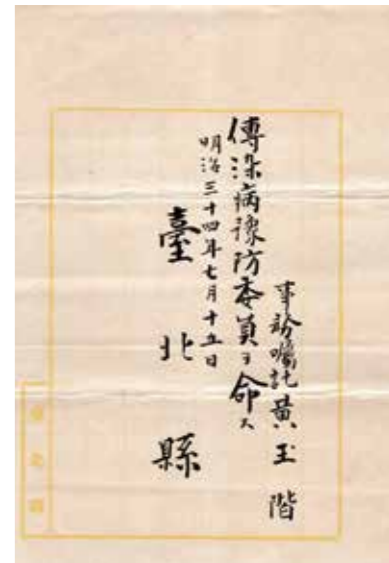 事務囑託黃玉階
傳染病豫防委員ヲ命ス
明治三十四年七月十五日
臺北縣
臺北縣